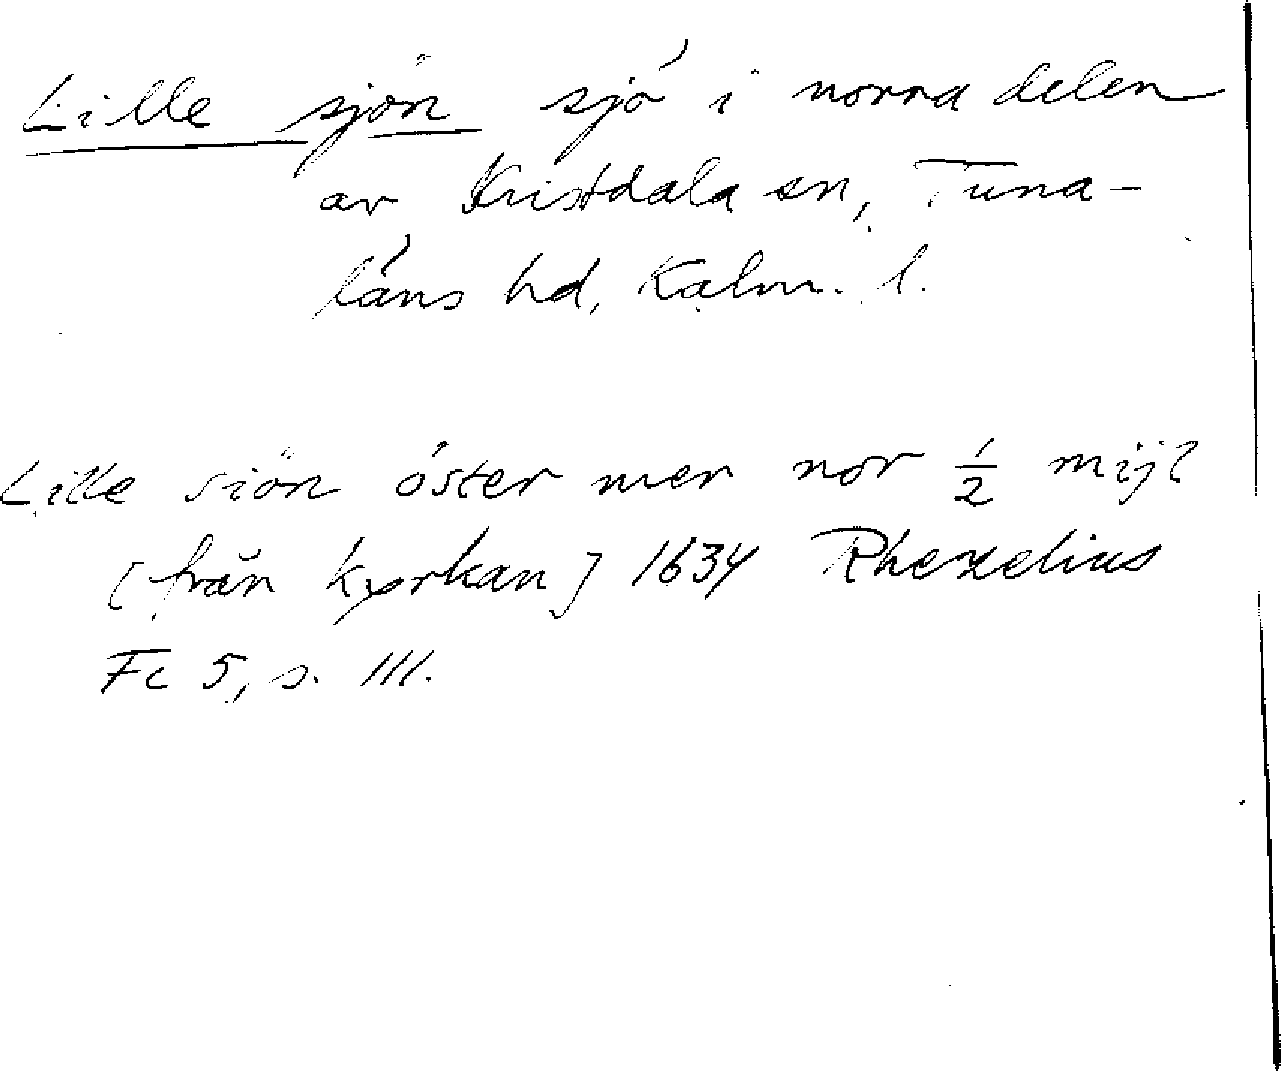 Lille sjön sjö i norra delen
av Kristdala sn, Tuna-
läns hd, Kalm. l.
Lille siön öster mer nor ½ mijl
[från kyrkan] 1634 Rhezelius
Fc 5, s. 111.